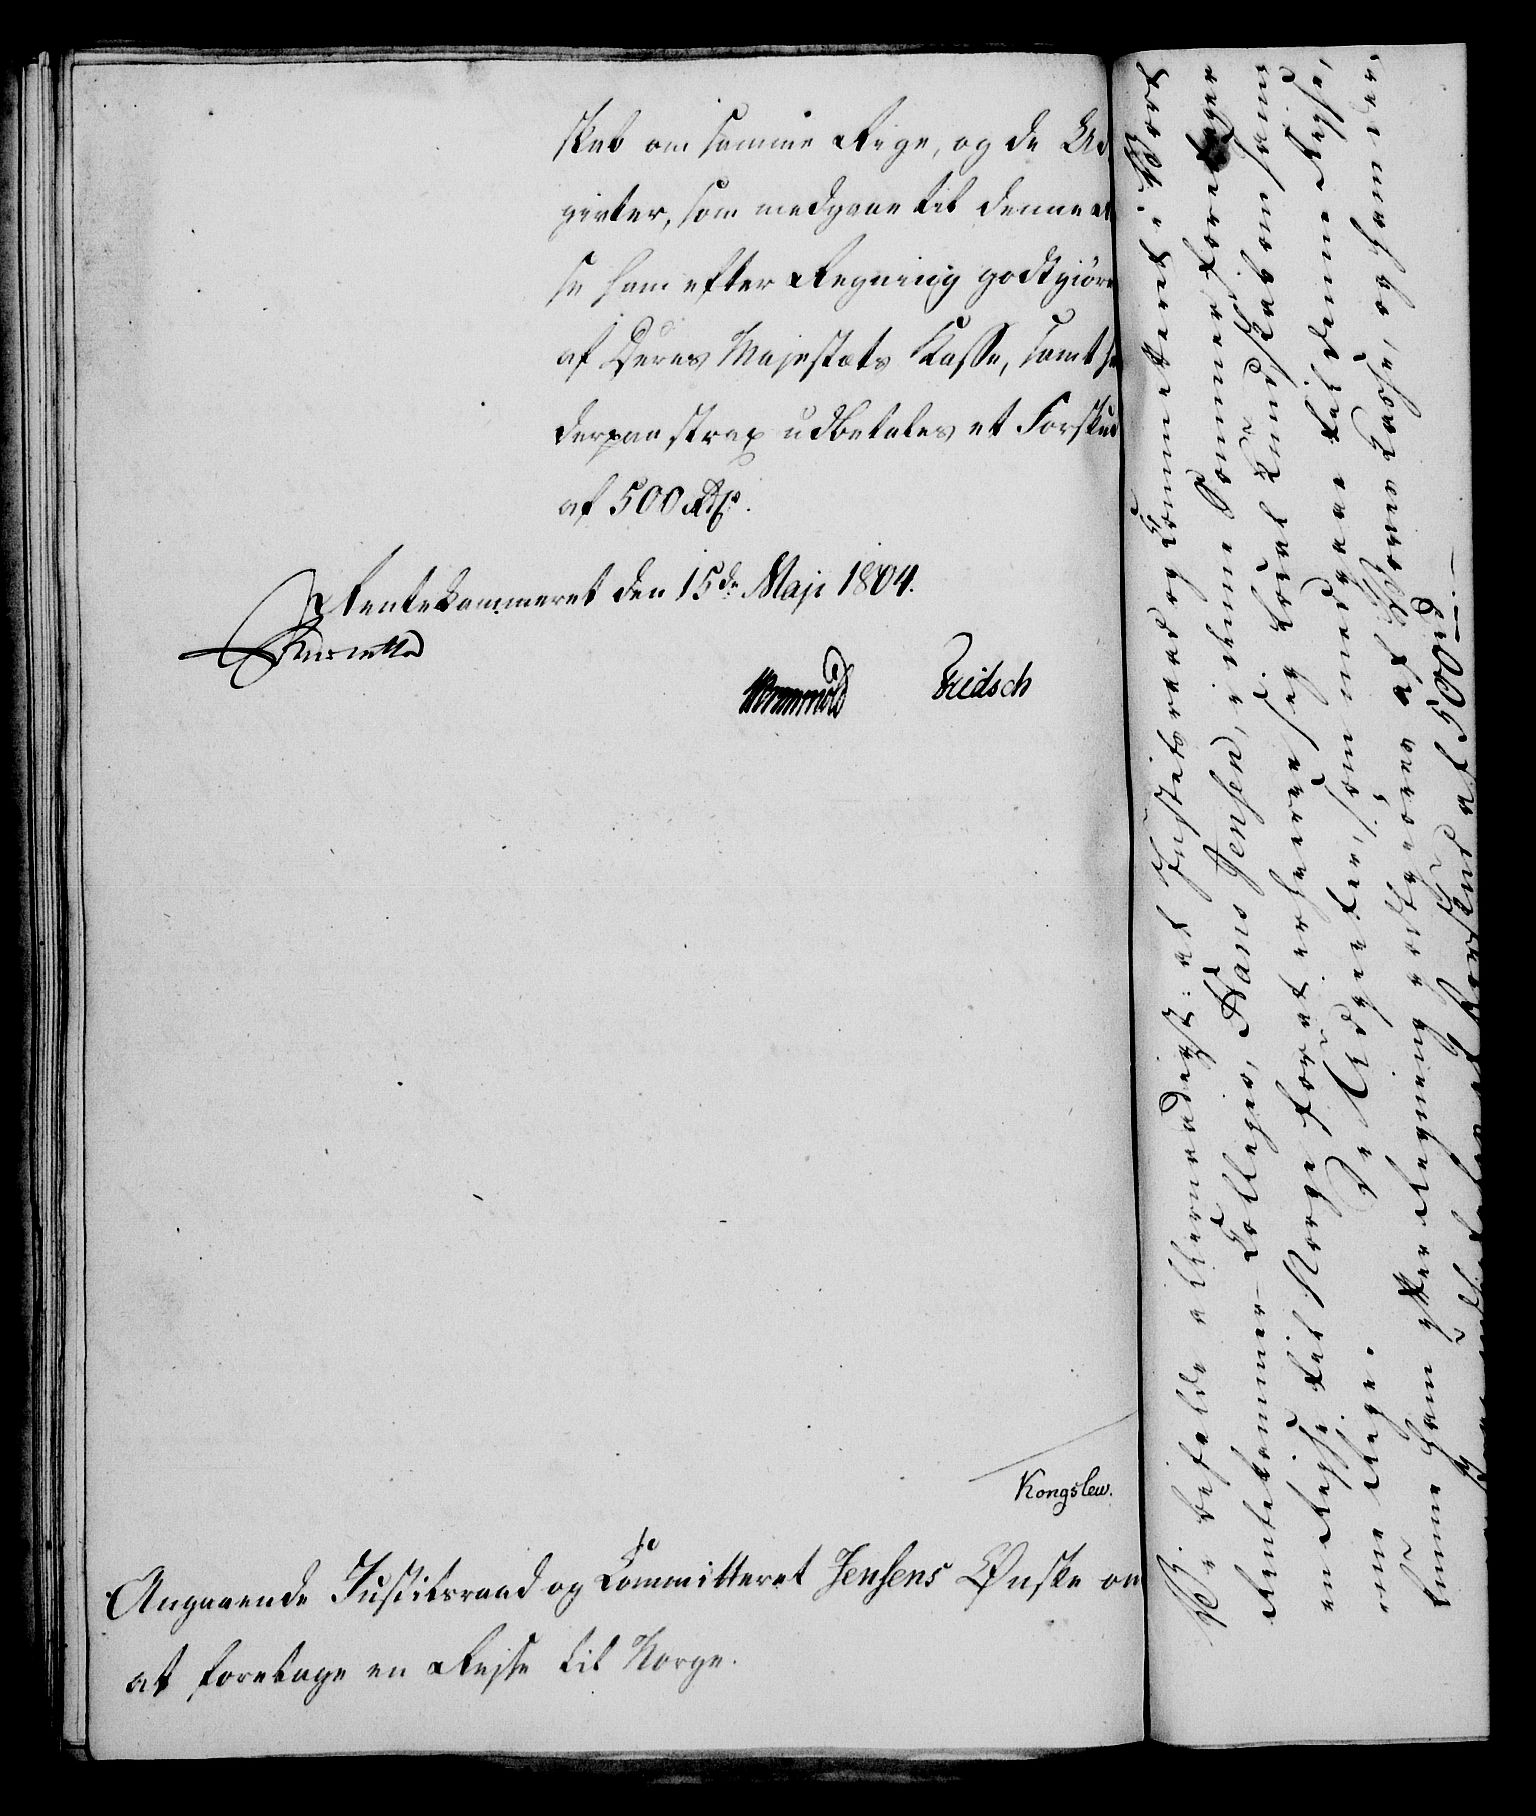 skab om samme Rige, og de Ud
givter, som medgaae til denne
se ham efter Regning godtgiöre
af Deres Majestæts Kasse, samt
derpaa strax udbetales et Forskud
af 500 Rd.
Rentekammeret den 15de Maji 1804.
Fridsch
Kongslew.
Angaaende Justitsraad og Committeret Jensens Ønske om
at foretage en Rejse til Norge.
Vi befale allernaadigst: at Justitsraad og Committeret i Vort
Rentekammer-Collegio, Hans Jensen, i denne Sommer foretager
en Rejse til Norge for at erhverve sig local Kundskab om samme
Rige. De Udgivter, som medgaae til denne Rejse,
ham efter Regning godtgiöres af Vores Kasse, og ham der
udbetales et Forskud af 500 rd.